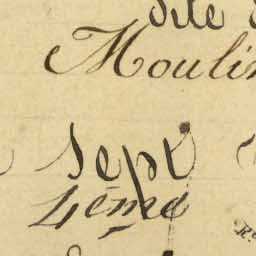 dite
Moulin
Sept
4ème